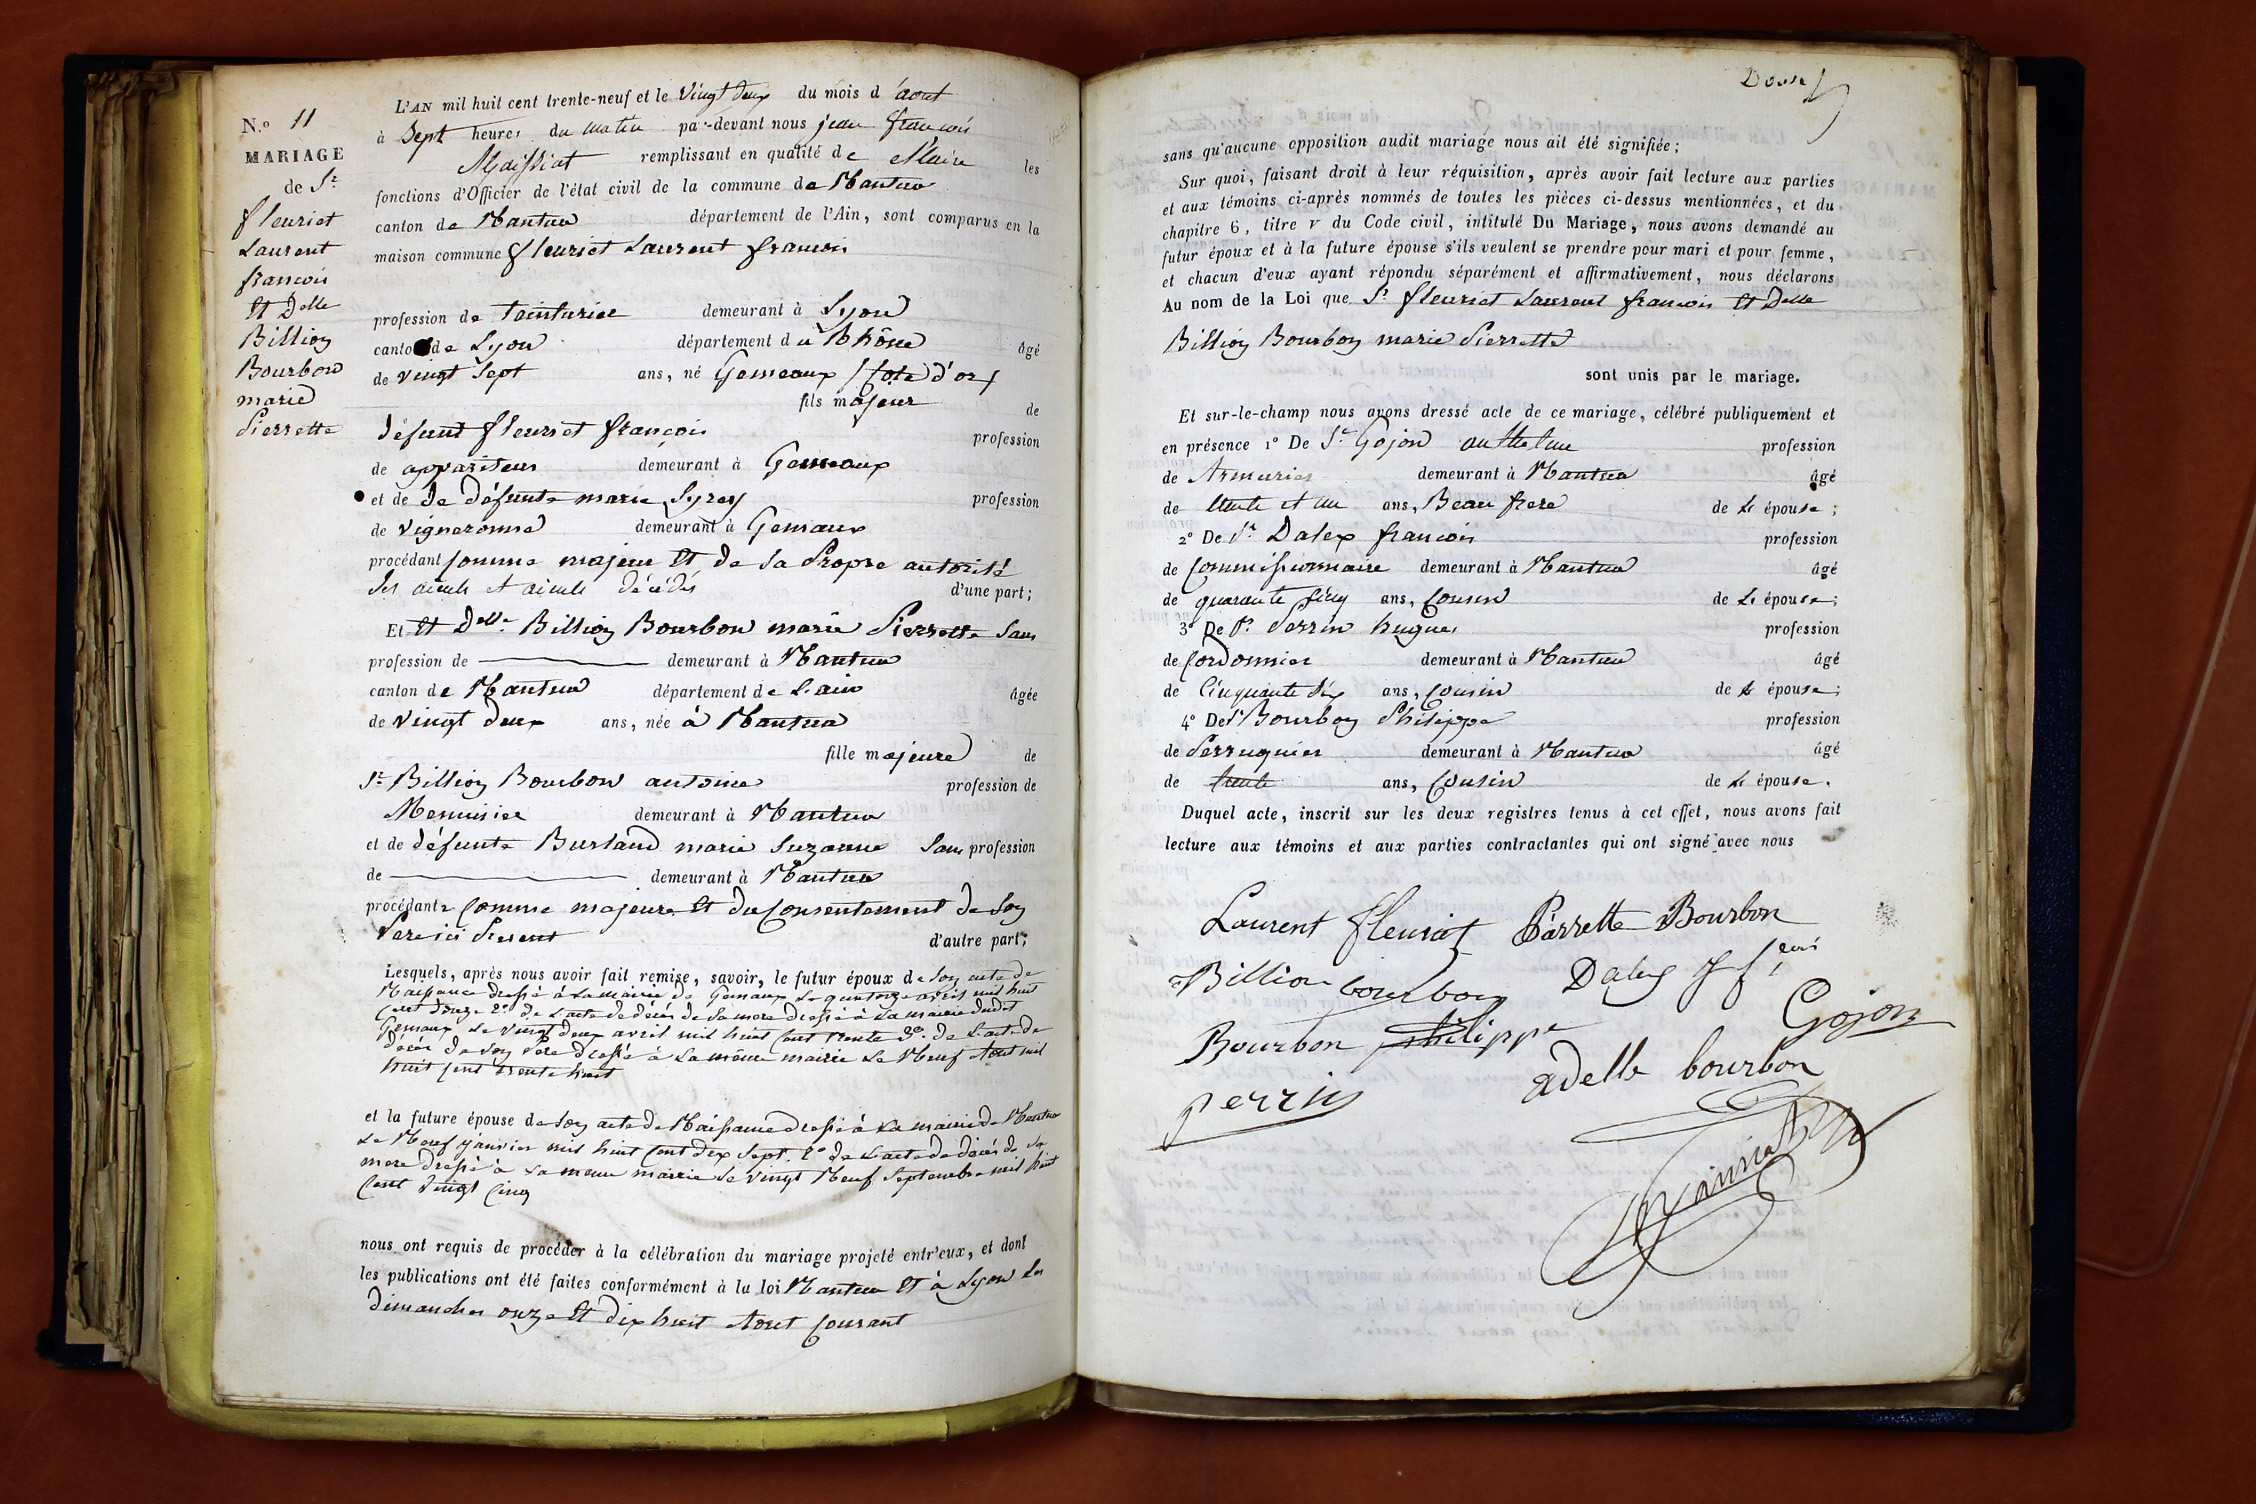 N.º 11
MARIAGE
de Sr
fleuriet
Laurent
francois
Et Delle
Billion
Bourbon
marie
Pierrette
L'AN mil huit cent trente-neuf et le vingt deux du mois d'aout
à Sept heures du matin par-devant nous jean francois
Maissiat remplissant en qualité de Maire les
fonctions d'Officier de l'état civil de la commune de Nantua
canton de Nantua département de l'Ain, sont comparus en la
maison commune fleuriet Laurent francois
profession de teinturier demeurant à Lyon
canton de Lyon département du Rhône âgé
de vingt Sept ans, né Gemeaux (Cote d'or)
fils majeur de
défunt fleuriet françois profession
de appariteur demeurant à Gemeaux
et de de défunte marie Syrey profession
de vigneronne demeurant à Gemeaux
procédant Comme majeur Et de Sa Propre autorité
Ses aieuls et aieules décédés d'une part;
Et Et Delle Billion Bourbon marie Pierrette Sans
profession de demeurant à Nantua
canton de Nantua département de L'ain âgée
de vingt deux ans, née à Nantua
fille majeure de
Sr Billion Bourbon antoine profession de
Menuisier demeurant à Nantua
et de défunte Burland marie Suzanne Sans profession
de demeurant à Nantua
procédante Comme majeure Et du Consentement de Son
Pere ici Présent d'autre part;
Lesquels, après nous avoir fait remise, savoir, le futur époux de Son acte de
Naissance dressé à La mairie de Gemeaux Le quatorze avril mil huit
Cent douze 2º de L'acte de décès de Sa mere dressé à La mairie dudit
Gemeaux Le vingt deux avril mil huit Cent trente 3º de L'acte de
décès de Son Pere dressé à La même mairie Le Neuf Aout mil
huit Cent trente huit
et la future épouse de Son acte de Naissance dressé à La mairie de Nantua
Le Neuf janvier mil huit Cent dix Sept. 2º de L'acte de décès de Sa
mere dressé à La meme mairie Le vingt Neuf Septembre mil huit
Cent vingt Cinq
nous ont requis de procéder à la célébration du mariage projeté entr'eux, et dont
les publications ont été faites conformément à la loi Nantua Et à Lyon Les
dimanches onze Et dix huit Aout Courant
sans qu'aucune opposition audit mariage nous ait été signifiée;
Sur quoi, faisant droit à leur réquisition, après avoir fait lecture aux parties
et aux témoins ci-après nommés de toutes les pièces ci-dessus mentionnées, et du
chapitre 6, titre v du Code civil, intitulé Du Mariage, nous avons demandé au
futur époux et à la future épouse s'ils veulent se prendre pour mari et pour femme,
et chacun d'eux ayant répondu séparément et affirmativement, nous déclarons
Au nom de la Loi que Sr fleuriet Laurent francois Et Delle
Billion Bourbon marie Pierrette
sont unis par le mariage.
Et sur-le-champ nous avons dressé acte de ce mariage, célébré publiquement et
en présence 1º De Sr Gojon anthelme profession
de Armurier demeurant à Nantua âgé
de trente et un ans, Beau frere de L'épouse;
2º De Sr Dalex francois profession
de Commissionnaire demeurant à Nantua âgé
de quarante Cinq ans, Cousin de L'épouse;
3º De Sr Perrin hugues profession
de Cordonnier demeurant à Nantua âgé
de Cinquante Six ans, Cousin de L'épouse;
4º De Sr Bourbon Philippe profession
de Perruquier demeurant à Nantua âgé
de trente ans, Cousin de L'épouse.
Duquel acte, inscrit sur les deux registres tenus à cet effet, nous avons fait
lecture aux témoins et aux parties contractantes qui ont signé avec nous
Laurent fleuriet Pierrette Bourbon
Billion bourbon Dalex
Bourbon Philippe Gojon
adelle bourbon
perrin
Maissiat